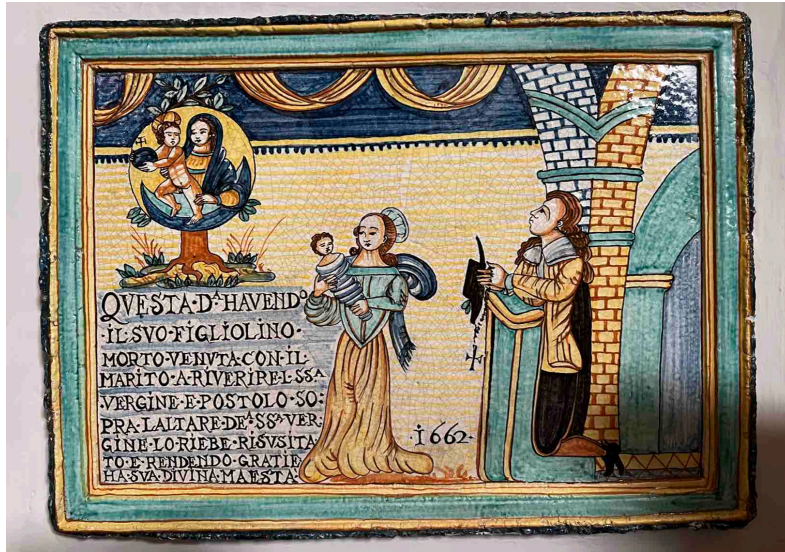 QVESTA·Dᴬ HAVENDº
·IL·SVO·FIGLIOLINO·
MORTO·VENVTA·CON·IL
MARITO·A·RIVERIRE·L·SSᴬ
VERGINE·E·POSTOLO·SO
PRA·LALTARE·DEᴬ·SSᴬ·VER
GINE·LO·RIEBE·RISVSITA
TO·E·RENDENDO·GRATIE
HA·SVA·DIVINA·MAESTA·
·1662·